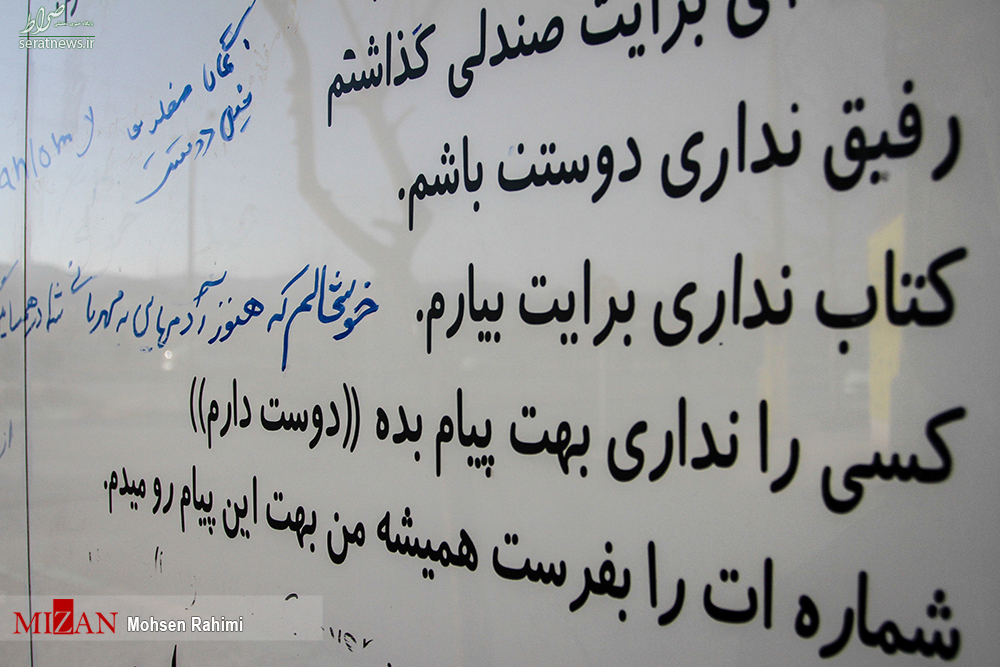 صراط
seratnews.ir
ی برایت صندلی گذاشتم
رفیق نداری دوستت باشم.
کتاب نداری برایت بیارم.
کسی را نداری بهت پیام بده ((دوست دارم))
شماره ات را بفرست همیشه من بهت این پیام رو میدم.
خیلی دوست
خوشحالم که هنوز آدمهایی به مهربانی شما در همسایگی
MIZAN Mohsen Rahimi